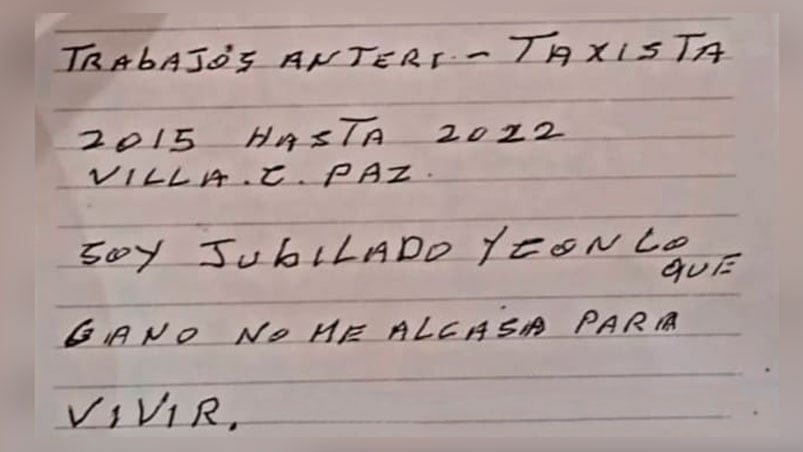 TRABAJOS ANTERI - TAXISTA
2015 HASTA 2022
VILLA. C. PAZ.
SOY JUBILADO Y CON LO
QUE
GANO NO ME ALCASA PARA
VIVIR.